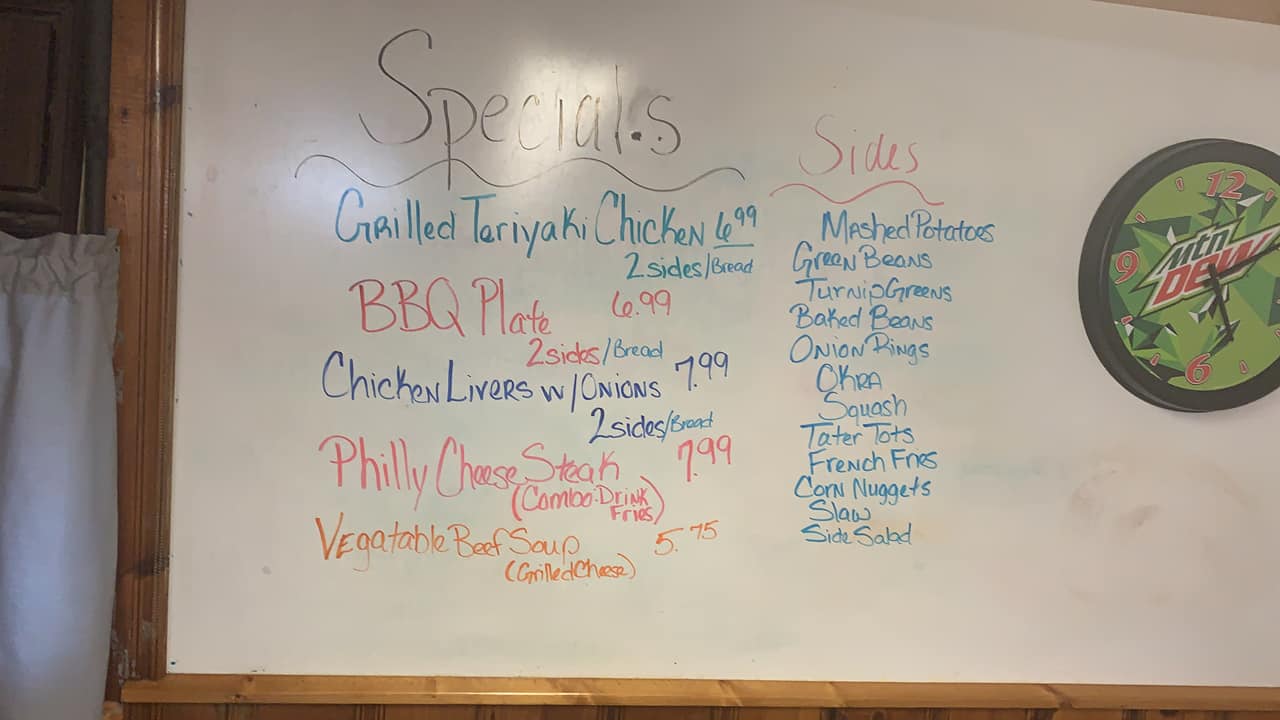 Specials
Grilled Teriyaki Chicken 6.99
2 sides/Bread
BBQ Plate 6.99
2 sides/Bread
Chicken Livers w/Onions 7.99
2 sides/Bread
Philly Cheese Steak 7.99
(Combo: Drink
Fries)
Vegatable Beef Soup 5.75
(Grilled Cheese)
Sides
Mashed Potatoes
Green Beans
Turnip Greens
Baked Beans
Onion Rings
Okra
Squash
Tater Tots
French Fries
Corn Nuggets
Slaw
Side Salad
12
9
Mtn
DEW
6